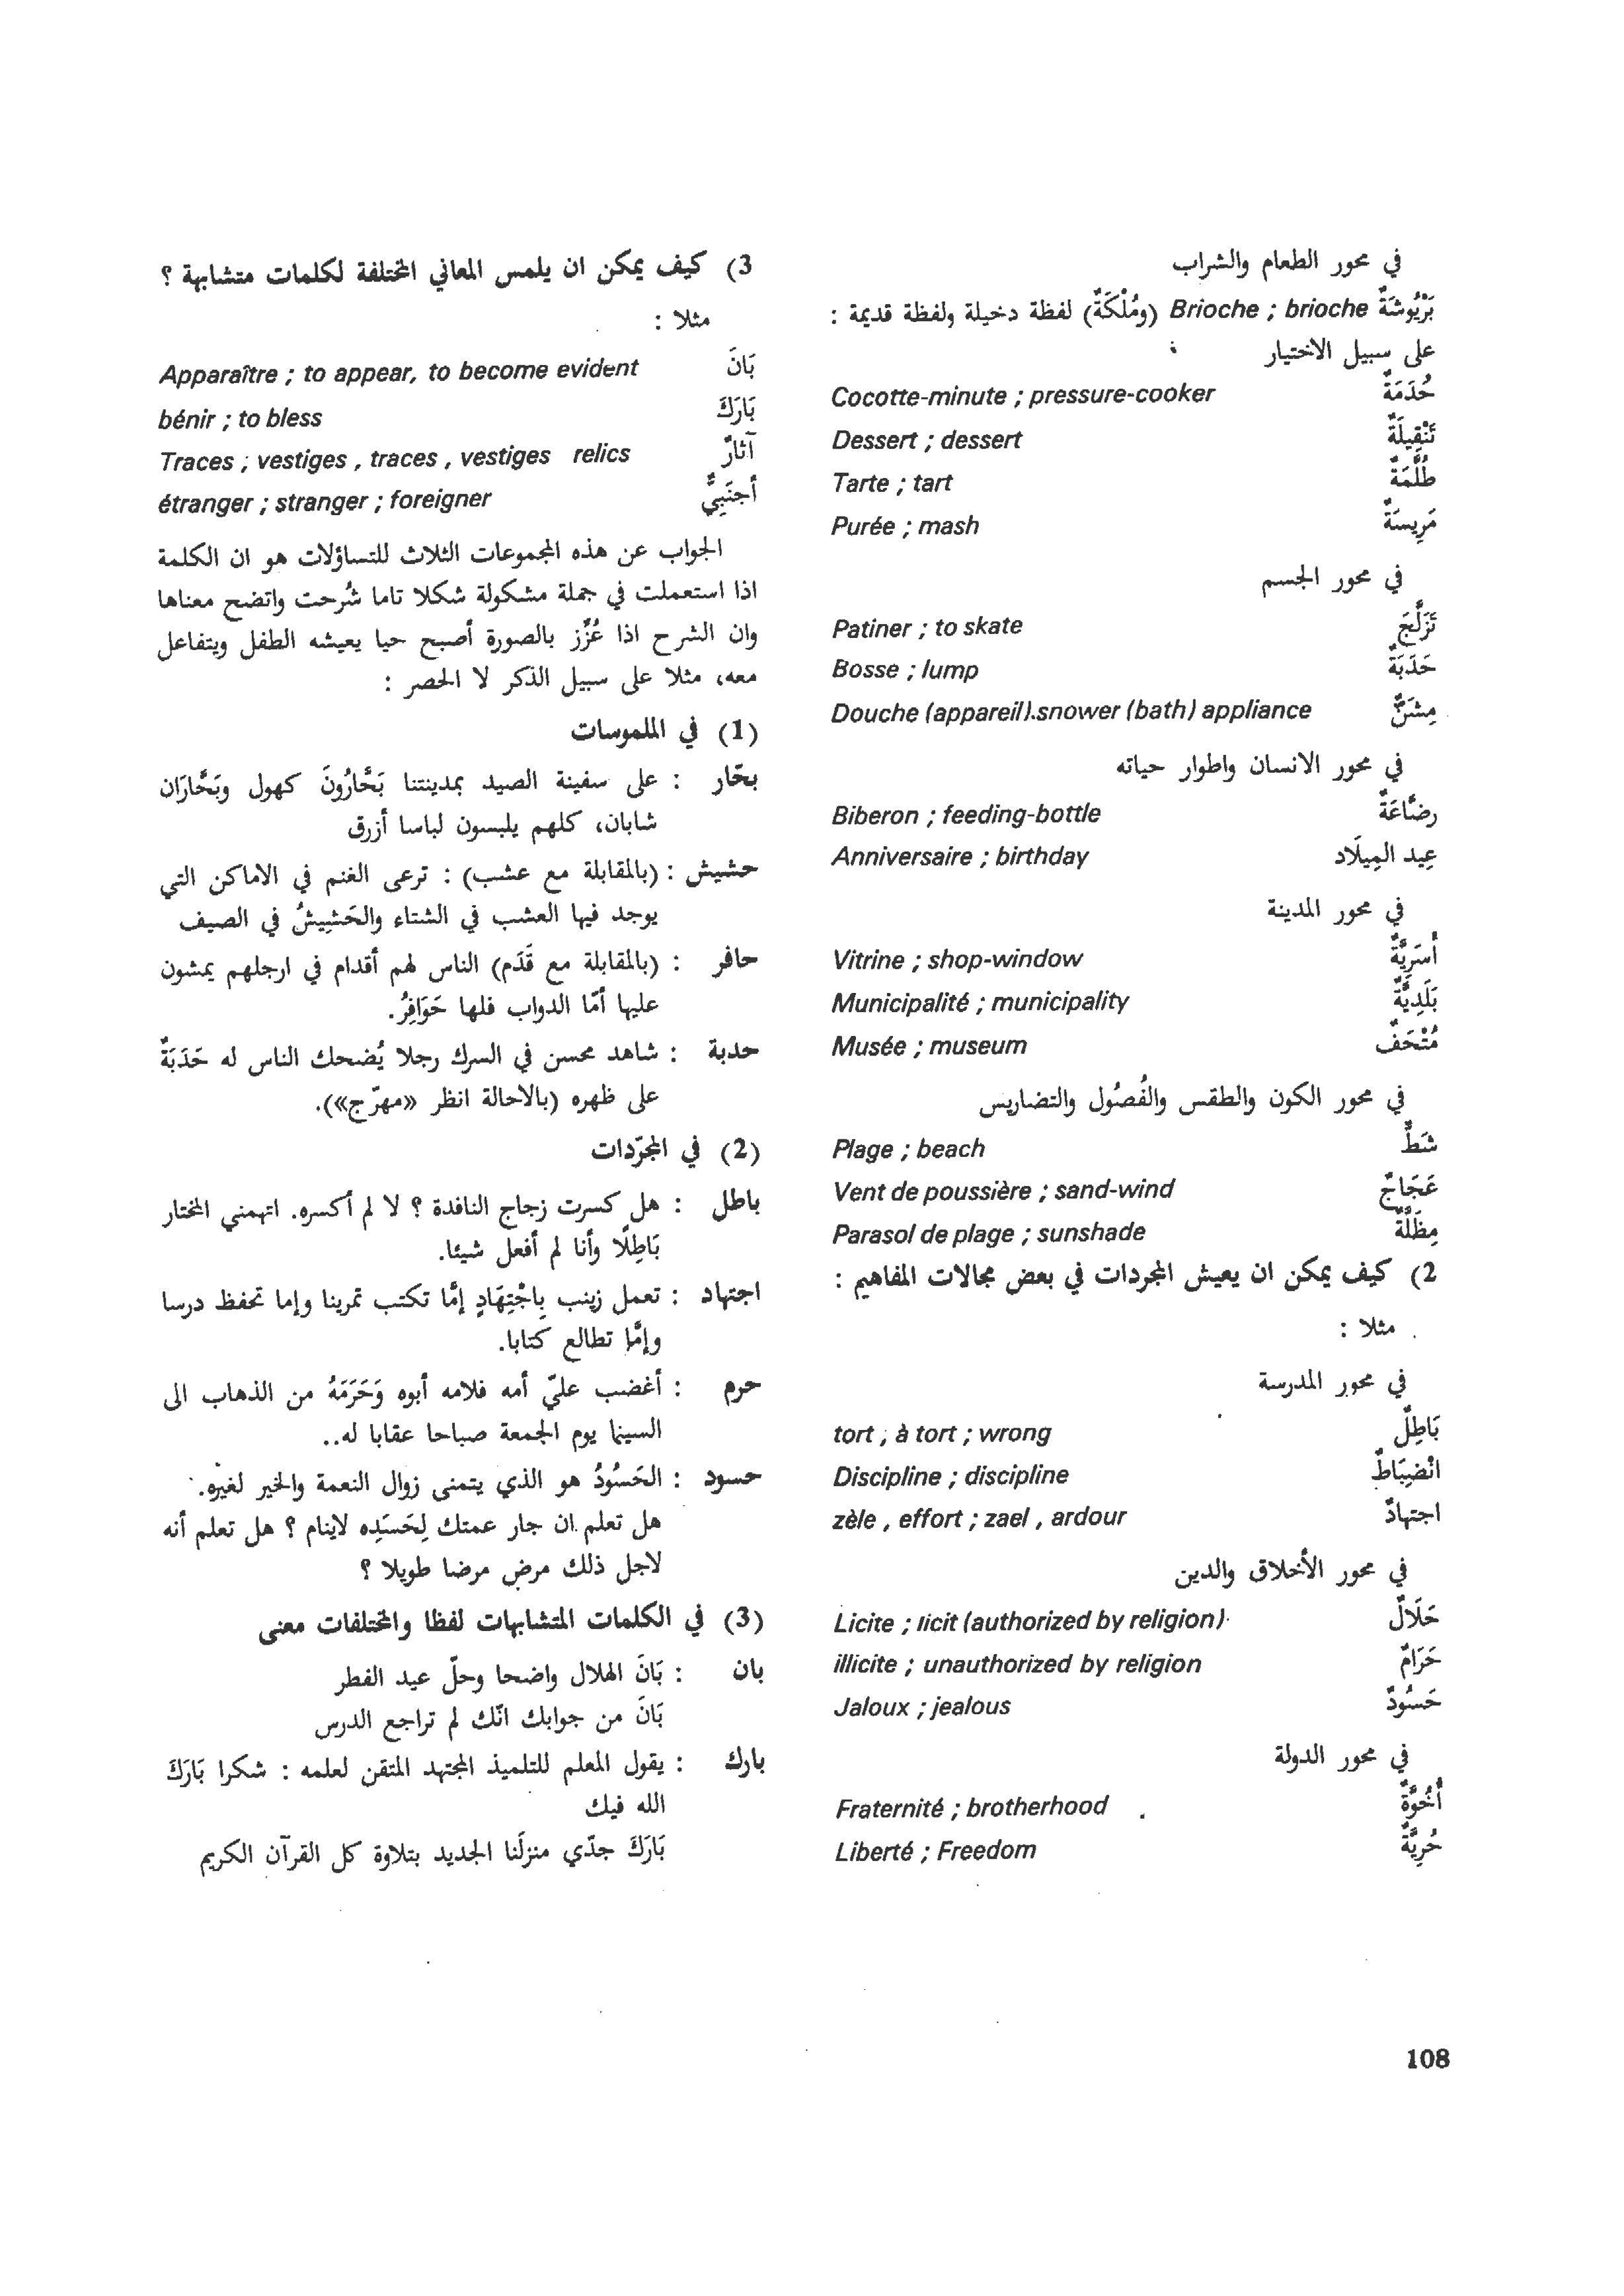 في محور الطعام والشراب
بَرْيُوشَةٌ Brioche ; brioche (ومُلْكَةٌ) لفظة دخيلة ولفظة قديمة :
على سبيل الاختيار
حُدَمَةٌ Cocotte-minute ; pressure-cooker
تَنْقِيلَةٌ Dessert ; dessert
طُلَّمَةٌ Tarte ; tart
مَرِيسَةٌ Purée ; mash
في محور الجسم
تَزَلَّجَ Patiner ; to skate
حَدَبَةٌ Bosse ; lump
مِشَنٌّ Douche (appareil).snower (bath) appliance
في محور الانسان واطوار حياته
رضَّاعَةٌ Biberon ; feeding-bottle
عِيد المِيلَاد Anniversaire ; birthday
في محور المدينة
أسَرِيَّةٌ Vitrine ; shop-window
بَلَدِيَّةٌ Municipalité ; municipality
مُتْحَفٌ Musée ; museum
في محور الكون والطقس والفُصُول والتضاريس
شَطٌّ Plage ; beach
عَجَاجٌ Vent de poussière ; sand-wind
مِظَلَّةٌ Parasol de plage ; sunshade
2) كيف يمكن ان يعيش المجردات في بعض مجالات المفاهيم :
مثلا :
في محور المدرسة
بَاطِلٌ tort , à tort ; wrong
انْضِبَاطٌ Discipline ; discipline
اجتهادٌ zèle , effort ; zael , ardour
في محور الأخلاق والدين
حَلَالٌ Licite ; licit (authorized by religion)
حَرَامٌ illicite ; unauthorized by religion
حَسُودٌ Jaloux ; jealous
في محور الدولة
أُخُوَّةٌ Fraternité ; brotherhood
حُرِيَّةٌ Liberté ; Freedom
3) كيف يمكن ان يلمس المعاني المختلفة لكلمات متشابهة ؟
مثلا :
بَانَ Apparaître ; to appear, to become evident
بَارَكَ bénir ; to bless
آثارٌ Traces ; vestiges , traces , vestiges relics
أجنَبِيٌّ étranger ; stranger ; foreigner
الجواب عن هذه المجموعات الثلاث للتساؤلات هو ان الكلمة
اذا استعملت في جملة مشكولة شكلا تاما شُرحت واتضح معناها
وان الشرح اذا عُزِّز بالصورة أصبح حيا يعيشه الطفل ويتفاعل
معه، مثلا على سبيل الذكر لا الحصر :
(1) في الملموسات
بحّار : على سفينة الصيد بمدينتنا بَحَّارُونَ كهول وبَحَّارَان
شابان، كلهم يلبسون لباسا أزرق
حشيش : (بالمقابلة مع عشب) : ترعى الغنم في الاماكن التي
يوجد فيها العشب في الشتاء والحَشِيشُ في الصيف
حافر : (بالمقابلة مع قَدَم) الناس لهم أقدام في ارجلهم يمشون
عليها أمّا الدواب فلها حَوَافِرُ.
حدبة : شاهد محسن في السرك رجلا يُضحك الناس له حَدَبَةٌ
على ظهره (بالاحالة انظر «مهرّج»).
(2) في المجرّدات
باطل : هل كسرت زجاج النافدة ؟ لا لم أكسره. اتهمني المختار
بَاطِلًا وأنا لم أفعل شيئا.
اجتهاد : تعمل زينب بِاجْتِهَادٍ إمَّا تكتب تمرينا وإما تحفظ درسا
وإمَّا تطالع كتابا.
حرم : أغضب عليّ أمه فلامه أبوه وَحَرَمَهُ من الذهاب الى
السينما يوم الجمعة صباحا عقابا له..
حسود : الحَسُودُ هو الذي يتمنى زوال النعمة والخير لغيره.
هل تعلم ان جار عمتك لِحَسَدِه لاينام ؟ هل تعلم أنه
لاجل ذلك مرض مرضا طويلا ؟
(3) في الكلمات المتشابهات لفظا والمختلفات معنى
بان : بَانَ الهلال واضحا وحلّ عيد الفطر
بَانَ من جوابك انّك لم تراجع الدرس
بارك : يقول المعلم للتلميذ المجتهد المتقن لعلمه : شكرا بَارَكَ
الله فيك
بَارَكَ جدّي منزلَنا الجديد بتلاوة كل القرآن الكريم
108